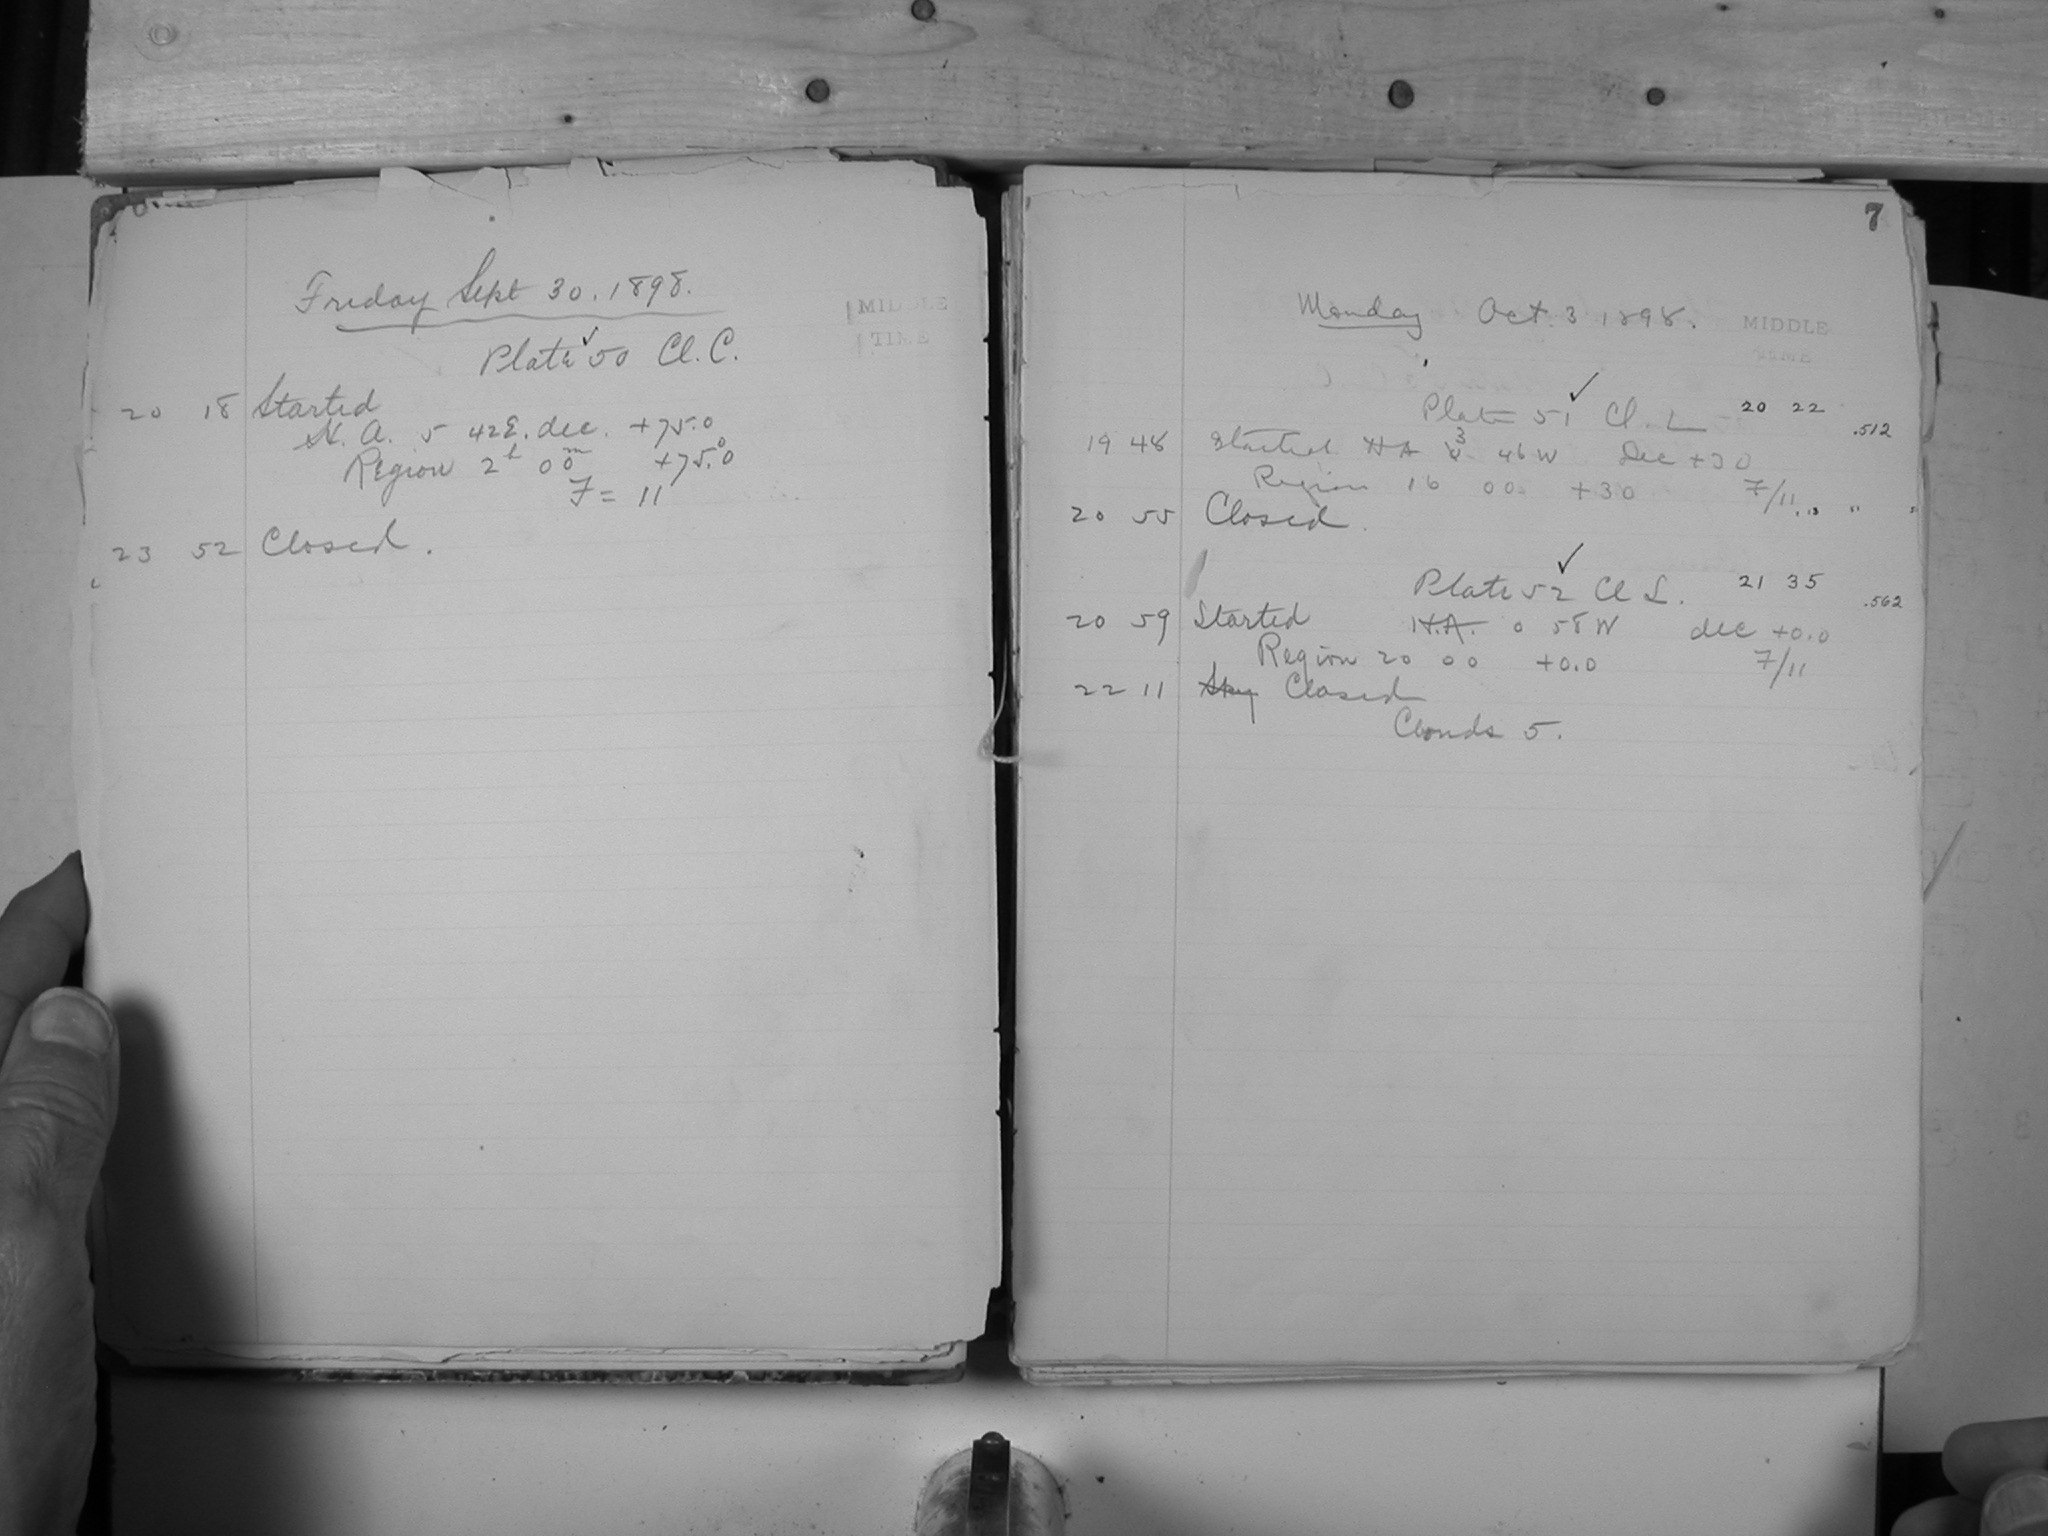 Friday Sept 30. 1898.
MIDDLE
TIME
Plate 50 Cl. C.
20 18 Started
H. A. 5 42 E. dec. +75.0
Region 2h 00m +75.°0
F = 11
23 52 Closed.
7
Monday Oct. 3 1898.
MIDDLE
TIME
Plate 51 Cl. L 20 22
.512
19 48 Started HA 3 46 W Dec +30
Region 16 00 +30 7/11
20 55 Closed.
Plate 52 Cl L. 21 35
.562
20 59 Started H.A. 0 58 W dec +0.0
Region 20 00 +0.0 7/11
22 11 Sky Closed
Clouds 5.